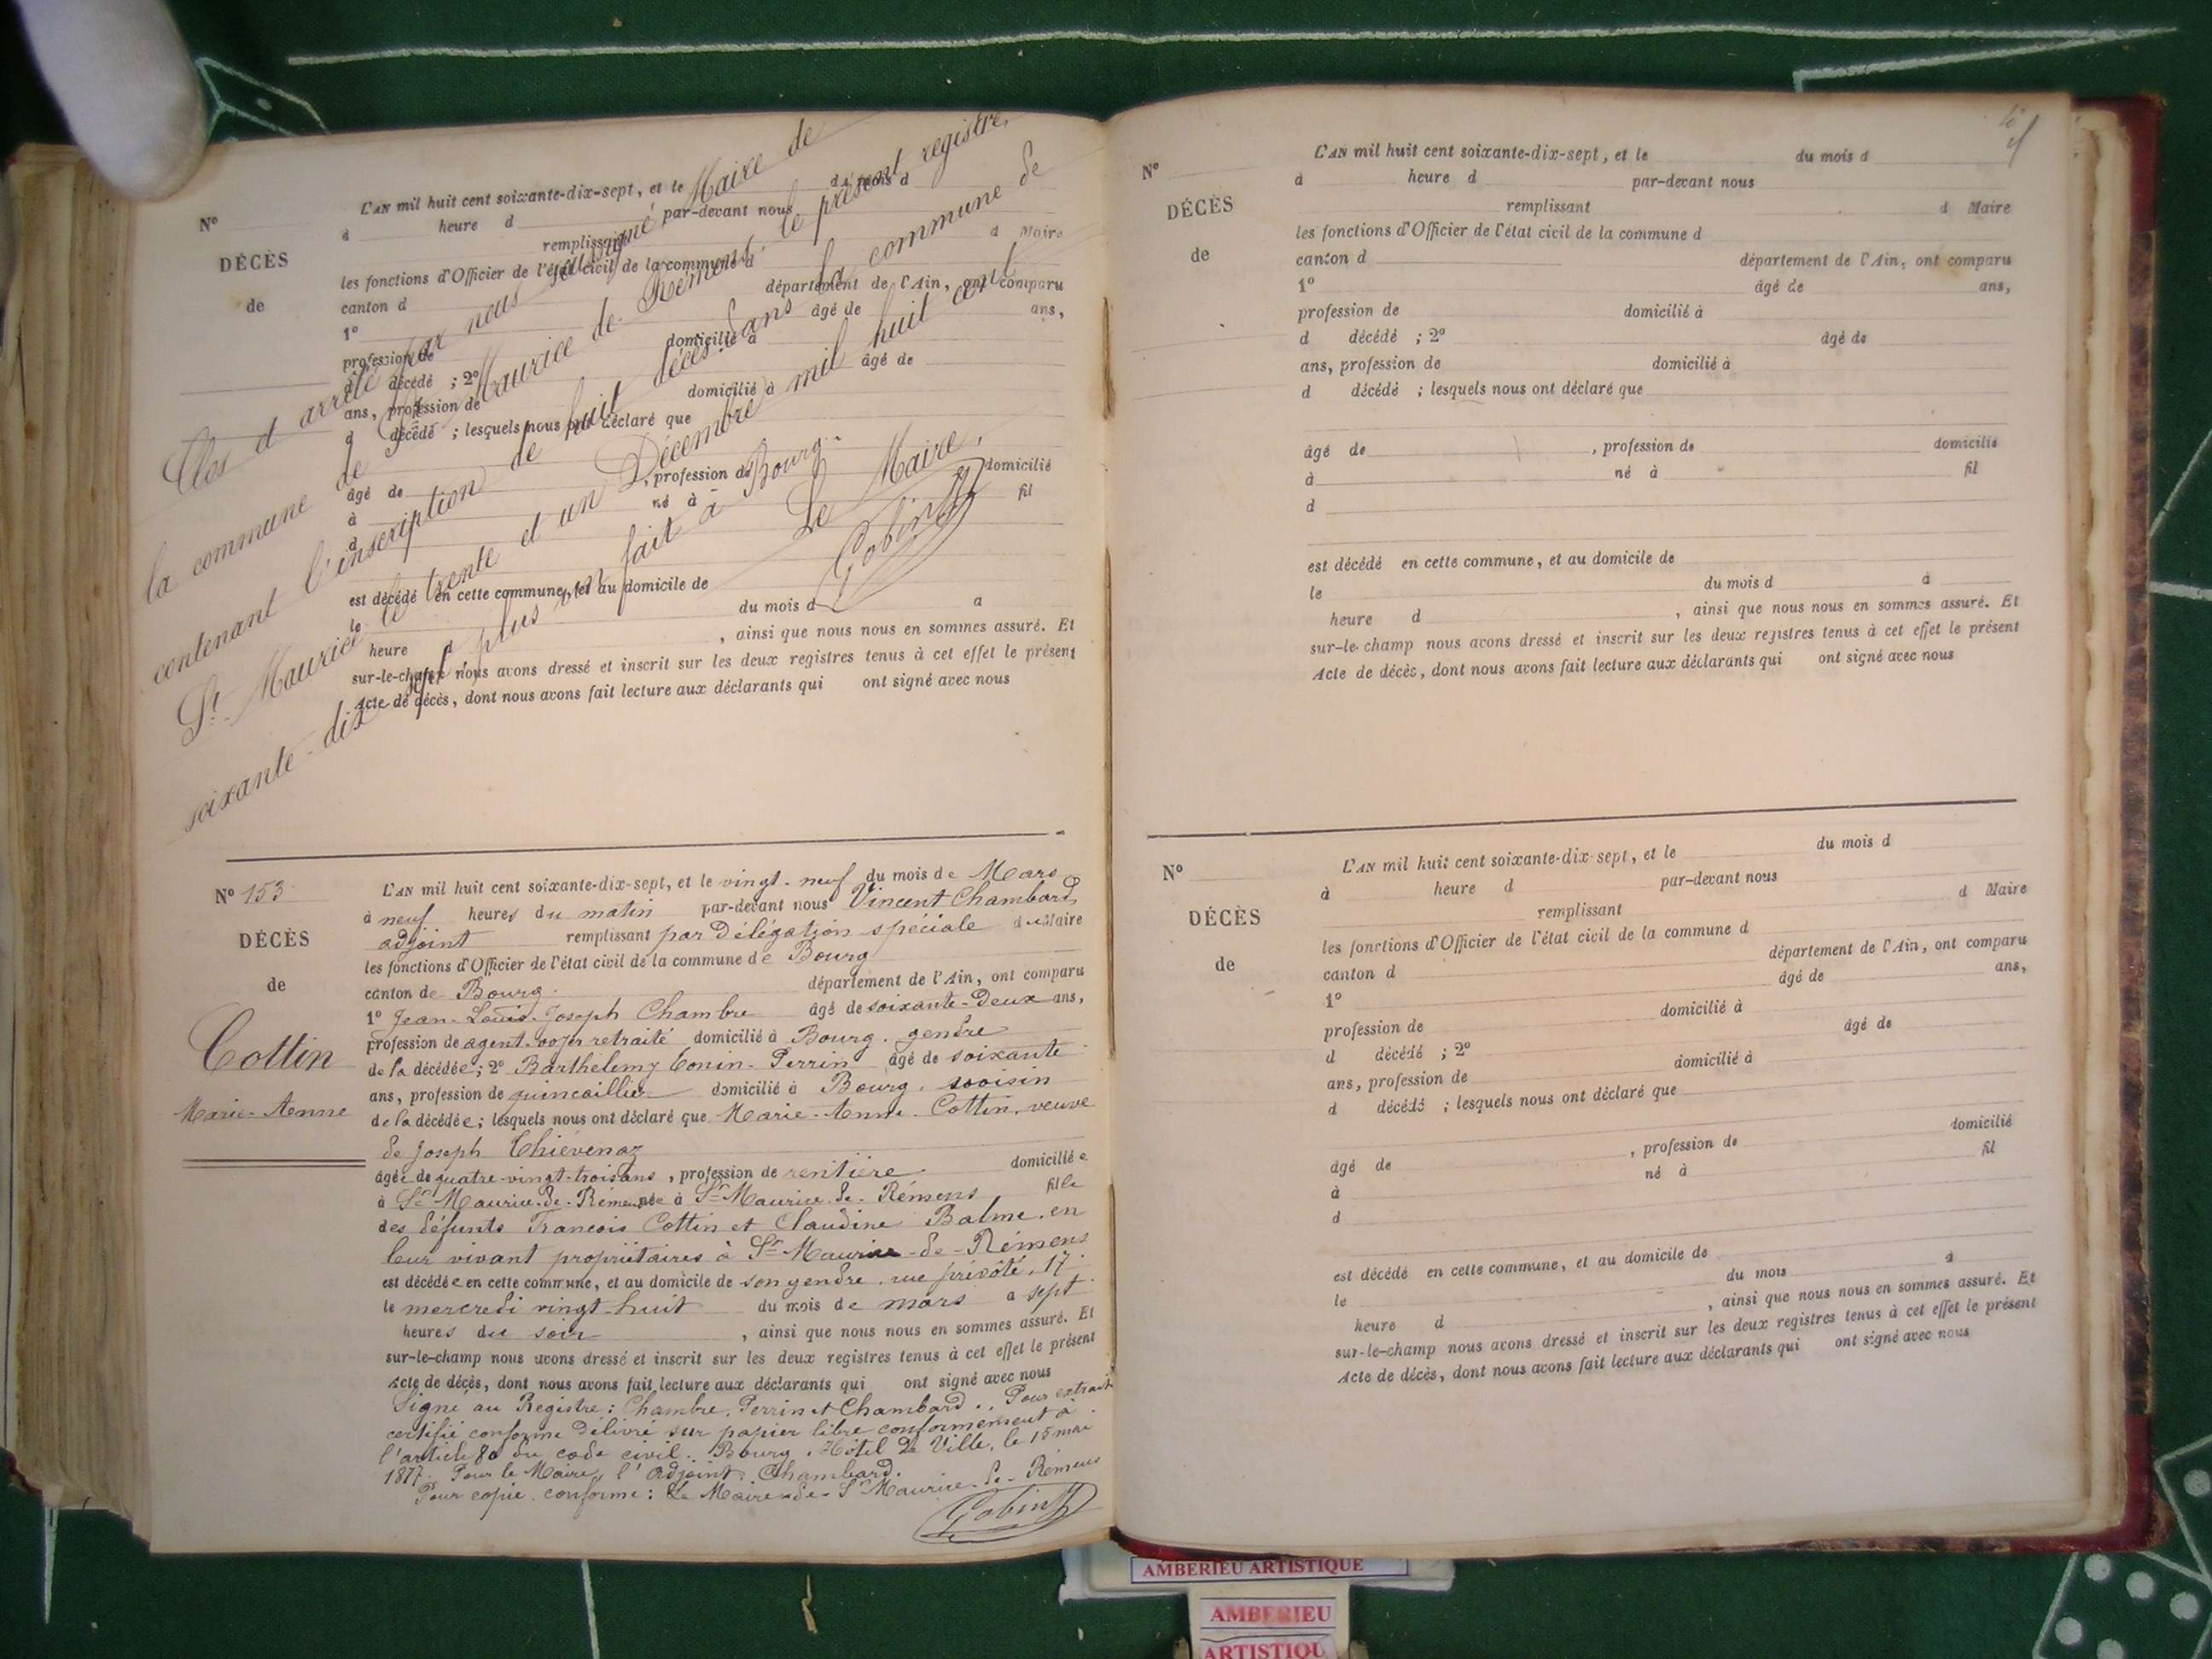 Clos et arrêté par nous soussigné Maire de
la commune de St Maurice de Rémens, le présent registre,
contenant l'inscription de huit décès dans la commune de
St Maurice le trente et un Décembre mil huit cent
soixante-dix sept, plus un fait à Bourg.
Le Maire,
Gobin
No
DÉCÈS
de
L'AN mil huit cent soixante-dix-sept, et le du mois d
à heure d par-devant nous
remplissant d Maire
les fonctions d'Officier de l'état civil de la commune d
canton d département de l'Ain, ont comparu
1o âgé de ans,
profession de domicilié à
d décédé ; 2o âgé de
ans, profession de domicilié à
d décédé ; lesquels nous ont déclaré que
âgé de , profession de domicilié
à né à fil
d
est décédé en cette commune, et au domicile de
le du mois d a
heure , ainsi que nous nous en sommes assuré. Et
sur-le-champ nous avons dressé et inscrit sur les deux registres tenus à cet effet le présent
Acte de décès, dont nous avons fait lecture aux déclarants qui ont signé avec nous
No 153
DÉCÈS
de
Cottin
Marie-Anne
L'AN mil huit cent soixante-dix-sept, et le vingt-neuf du mois de Mars
à neuf heures du matin par-devant nous Vincent Chambard,
adjoint remplissant par Délégation spéciale du Maire
les fonctions d'Officier de l'état civil de la commune de Bourg
canton de Bourg. département de l'Ain, ont comparu
1o Jean-Louis-Joseph Chambre âgé de soixante-deux ans,
profession de agent-voyer retraité domicilié à Bourg. gendre
de la décédée; 2o Barthélemy Conin-Perrin âgé de soixante
ans, profession de quincaillier domicilié à Bourg. voisin
de la décédée; lesquels nous ont déclaré que Marie-Anne Cottin, veuve
de Joseph Thiévenaz
âgée de quatre-vingt-trois ans, profession de rentière domiciliée
à St Maurice-de-Rémens née à St Maurice-de-Rémens fille
des défunts François Cottin et Claudine Balme, en
leur vivant propriétaires à St Maurice-de-Rémens
est décédée en cette commune, et au domicile de son gendre, rue prévôté, 17
le mercredi vingt-huit du mois de mars a sept
heures du soir , ainsi que nous nous en sommes assuré. Et
sur-le-champ nous avons dressé et inscrit sur les deux registres tenus à cet effet le présent
Acte de décès, dont nous avons fait lecture aux déclarants qui ont signé avec nous
Signé au Registre: Chambre, Perrin et Chambard.. Pour extrait
certifié conforme Délivré sur papier libre conformément à
l'article 80 du code civil. Bourg, Hôtel de Ville, le 15 mai
1877. Pour le Maire, l'Adjoint, Chambard.
Pour copie conforme: Le Maire de St Maurice-de-Rémens
Gobin
No
DÉCÈS
de
L'AN mil huit cent soixante-dix-sept, et le du mois d
à heure d par-devant nous
remplissant d Maire
les fonctions d'Officier de l'état civil de la commune d
canton d département de l'Ain, ont comparu
1o âgé de ans,
profession de domicilié à
d décédé ; 2o âgé de
ans, profession de domicilié à
d décédé ; lesquels nous ont déclaré que
âgé de , profession de domicilié
à né à fil
d
est décédé en cette commune, et au domicile de
le du mois d à
heure d , ainsi que nous nous en sommes assuré. Et
sur-le-champ nous avons dressé et inscrit sur les deux registres tenus à cet effet le présent
Acte de décès, dont nous avons fait lecture aux déclarants qui ont signé avec nous
No
DÉCÈS
de
L'AN mil huit cent soixante-dix-sept, et le du mois d
à heure d par-devant nous
remplissant d Maire
les fonctions d'Officier de l'état civil de la commune d
canton d département de l'Ain, ont comparu
1o âgé de ans,
profession de domicilié à
d décédé ; 2o âgé de
ans, profession de domicilié à
d décédé ; lesquels nous ont déclaré que
âgé de , profession de domicilié
à né à fil
d
est décédé en cette commune, et au domicile de
le du mois à
heure d , ainsi que nous nous en sommes assuré. Et
sur-le-champ nous avons dressé et inscrit sur les deux registres tenus à cet effet le présent
Acte de décès, dont nous avons fait lecture aux déclarants qui ont signé avec nous
AMBERIEU ARTISTIQUE
AMBERIEU
ARTISTIQU